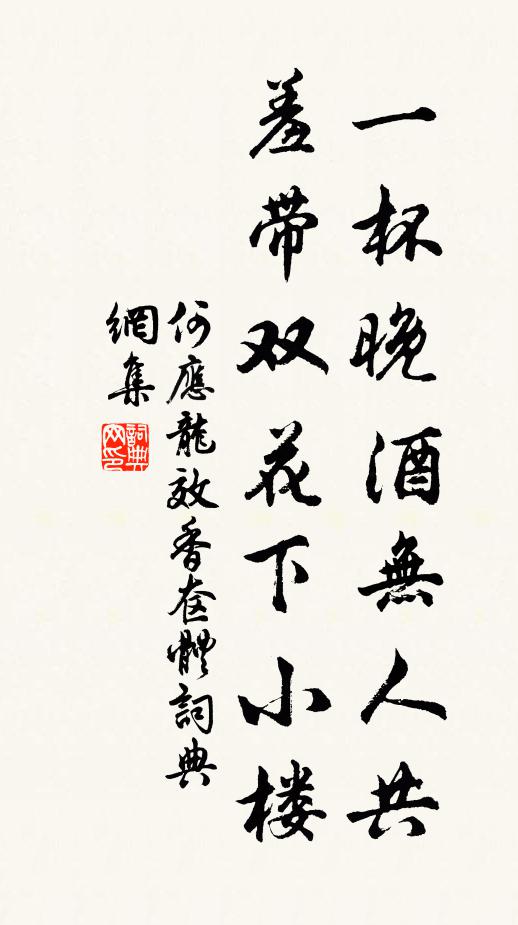 一杯晚酒無人共
羞带双花下小楼
何應龍效香奩體詞典
網集
詞典
网印